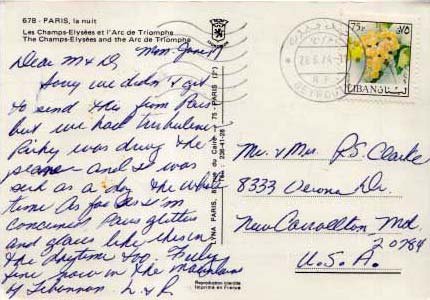 678 - PARIS, la nuit
Les Champs-Elysées et l'Arc de Triomphe
The Champs-Elysées and the Arc de Triomphe
Mon. June 17
Dear M & D,
Sorry we didn't get
to send this from Paris
but we had turbulence
Ricky was the
plane and I was
sick as a dog the whole
time As far as I'm
concerned Paris glitters
and glows like this in
the daytime too. Fully
fine now in the mainland
of Lebanon. L & R.
LYNA PARIS, 8, rue du Caire - 75 - PARIS (2°)
236-41-28
Reproduction interdite
Imprimé en France
75p
٧٥
LIBAN لبنان
BEYROUTH
Mr. & Mrs. R.S. Clarke
8333 Verona Dr.
New Carrollton, Md.
20784
U.S.A.